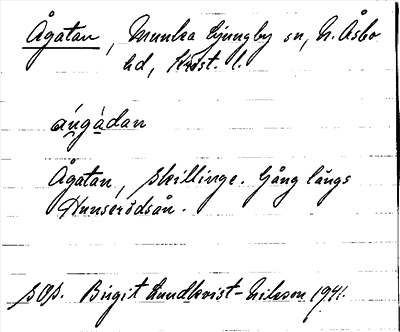 Ågatan, Munka Ljungby sn, N. Åsbo
hd, Krist. l.
áu̯gàdan
Ågatan, Skillinge. Gång längs
Hunserödsån.
SOS. Birgit Lundkvist-Nilsson 1941.